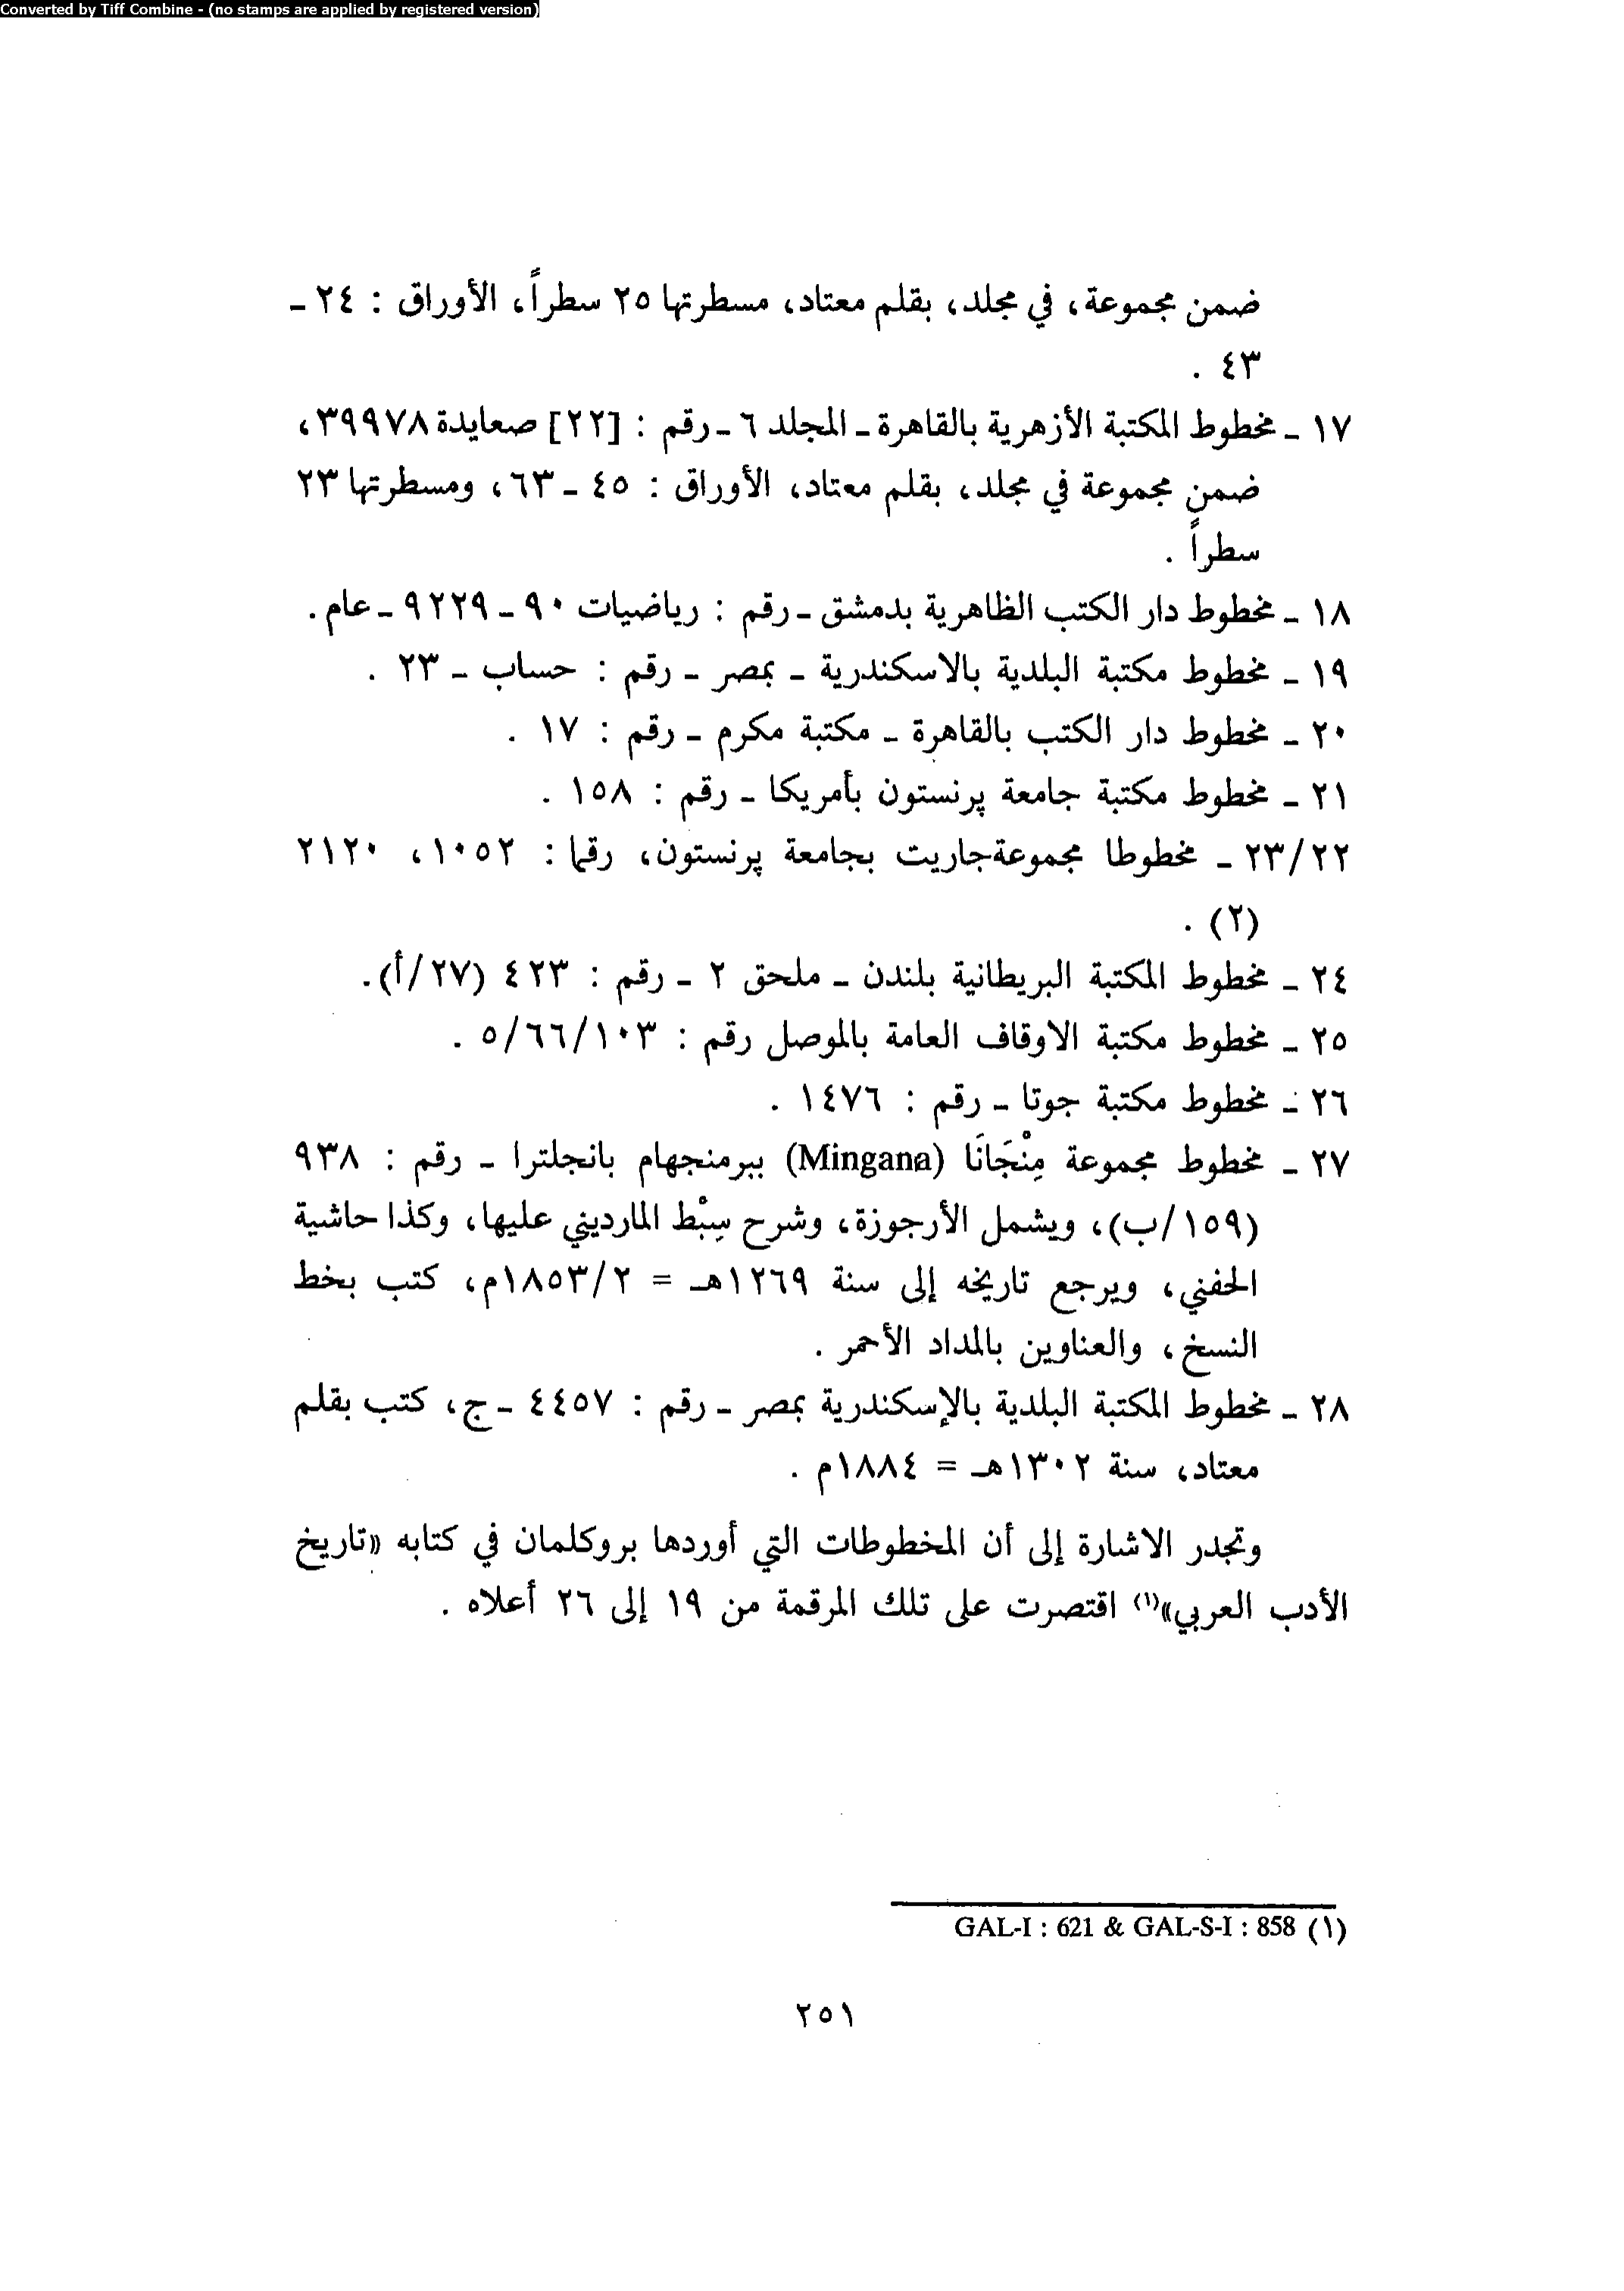 Converted by Tiff Combine - (no stamps are applied by registered version)
ضمن مجموعة، في مجلد، بقلم معتاد، مسطرتها ٢٥ سطراً، الأوراق : ٢٤ -
٤٣ .
١٧ - مخطوط المكتبة الأزهرية بالقاهرة - المجلد ٦ - رقم : [٢٢] صعايدة ٣٩٩٧٨،
ضمن مجموعة في مجلد، بقلم معتاد، الأوراق : ٤٥ - ٦٣، ومسطرتها ٢٣
سطراً .
١٨ - مخطوط دار الكتب الظاهرية بدمشق - رقم : رياضيات ٩٠ - ٩٢٢٩ - عام.
١٩ - مخطوط مكتبة البلدية بالاسكندرية - بمصر - رقم : حساب - ٢٣ .
٢٠ - مخطوط دار الكتب بالقاهرة - مكتبة مكرم - رقم : ١٧ .
٢١ - مخطوط مكتبة جامعة پرنستون بأمريكا - رقم : ١٥٨ .
٢٣/٢٢ - مخطوطا مجموعة جاريت بجامعة پرنستون، رقما : ١٠٥٢، ٢١٢٠
(٢) .
٢٤ - مخطوط المكتبة البريطانية بلندن - ملحق ٢ - رقم : ٤٢٣ (٢٧/أ).
٢٥ - مخطوط مكتبة الاوقاف العامة بالموصل رقم : ٥/٦٦/١٠٣ .
٢٦ - مخطوط مكتبة جوتا - رقم : ١٤٧٦ .
٢٧ - مخطوط مجموعة مِنْجَانَا (Mingana) ببرمنجهام بانجلترا - رقم : ٩٣٨
(١٥٩/ب)، ويشمل الأرجوزة، وشرح سِبْط المارديني عليها، وكذا حاشية
الحفني، ويرجع تاريخه إلى سنة ١٢٦٩هـ = ١٨٥٣/٢م، كتب بخط
النسخ، والعناوين بالمداد الأحمر .
٢٨ - مخطوط المكتبة البلدية بالإسكندرية بمصر - رقم : ٤٤٥٧ - ج، كتب بقلم
معتاد، سنة ١٣٠٢هـ = ١٨٨٤م .
وتجدر الاشارة إلى أن المخطوطات التي أوردها بروكلمان في كتابه «تاريخ
الأدب العربي»(١) اقتصرت على تلك المرقمة من ١٩ إلى ٢٦ أعلاه .
(١) GAL-I : 621 & GAL-S-I : 858
٢٥١